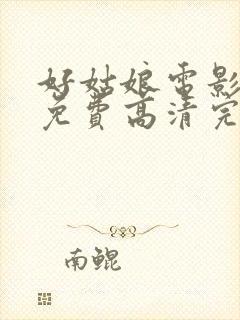 好姑娘电影
免费高清完
南鲲